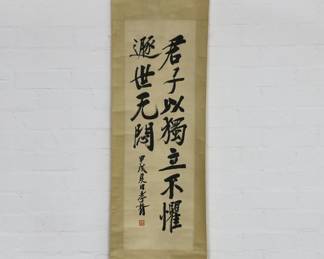 君子以獨立不懼
遯世无悶
甲戌夏日孝胥